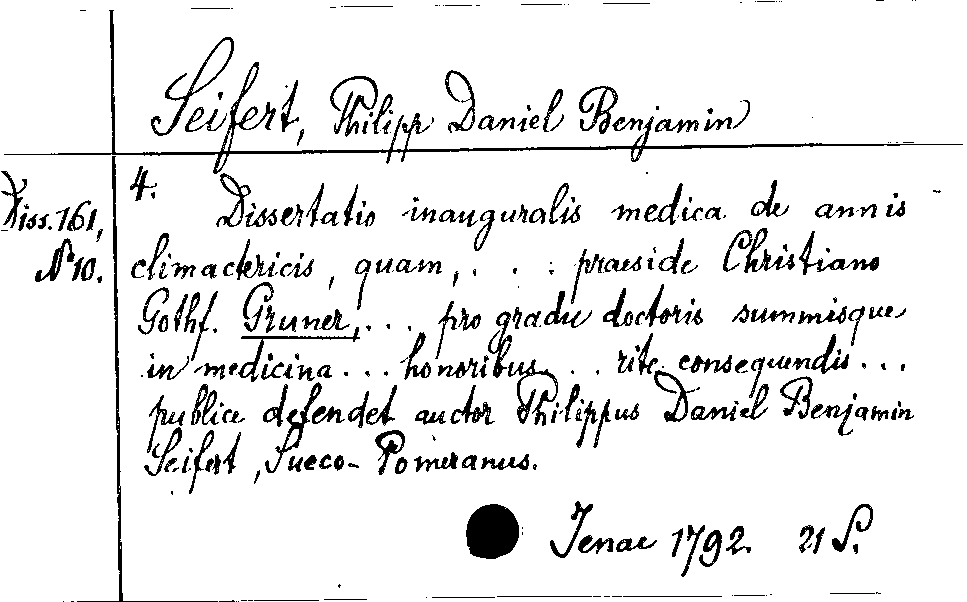 Seifert, Philipp Daniel Benjamin
Diss. 161,
N° 10.
4.
Dissertatio inauguralis medica de annis
climactericis, quam, . . . praeside Christiano
Gothf. Gruner, . . . pro gradu doctoris summisque
in medicina . . . honoribus . . . rite consequendis . . .
publice defendet auctor Philippus Daniel Benjamin
Seifert, Sueco-Pomeranus.
Jenae 1792. 21 S.